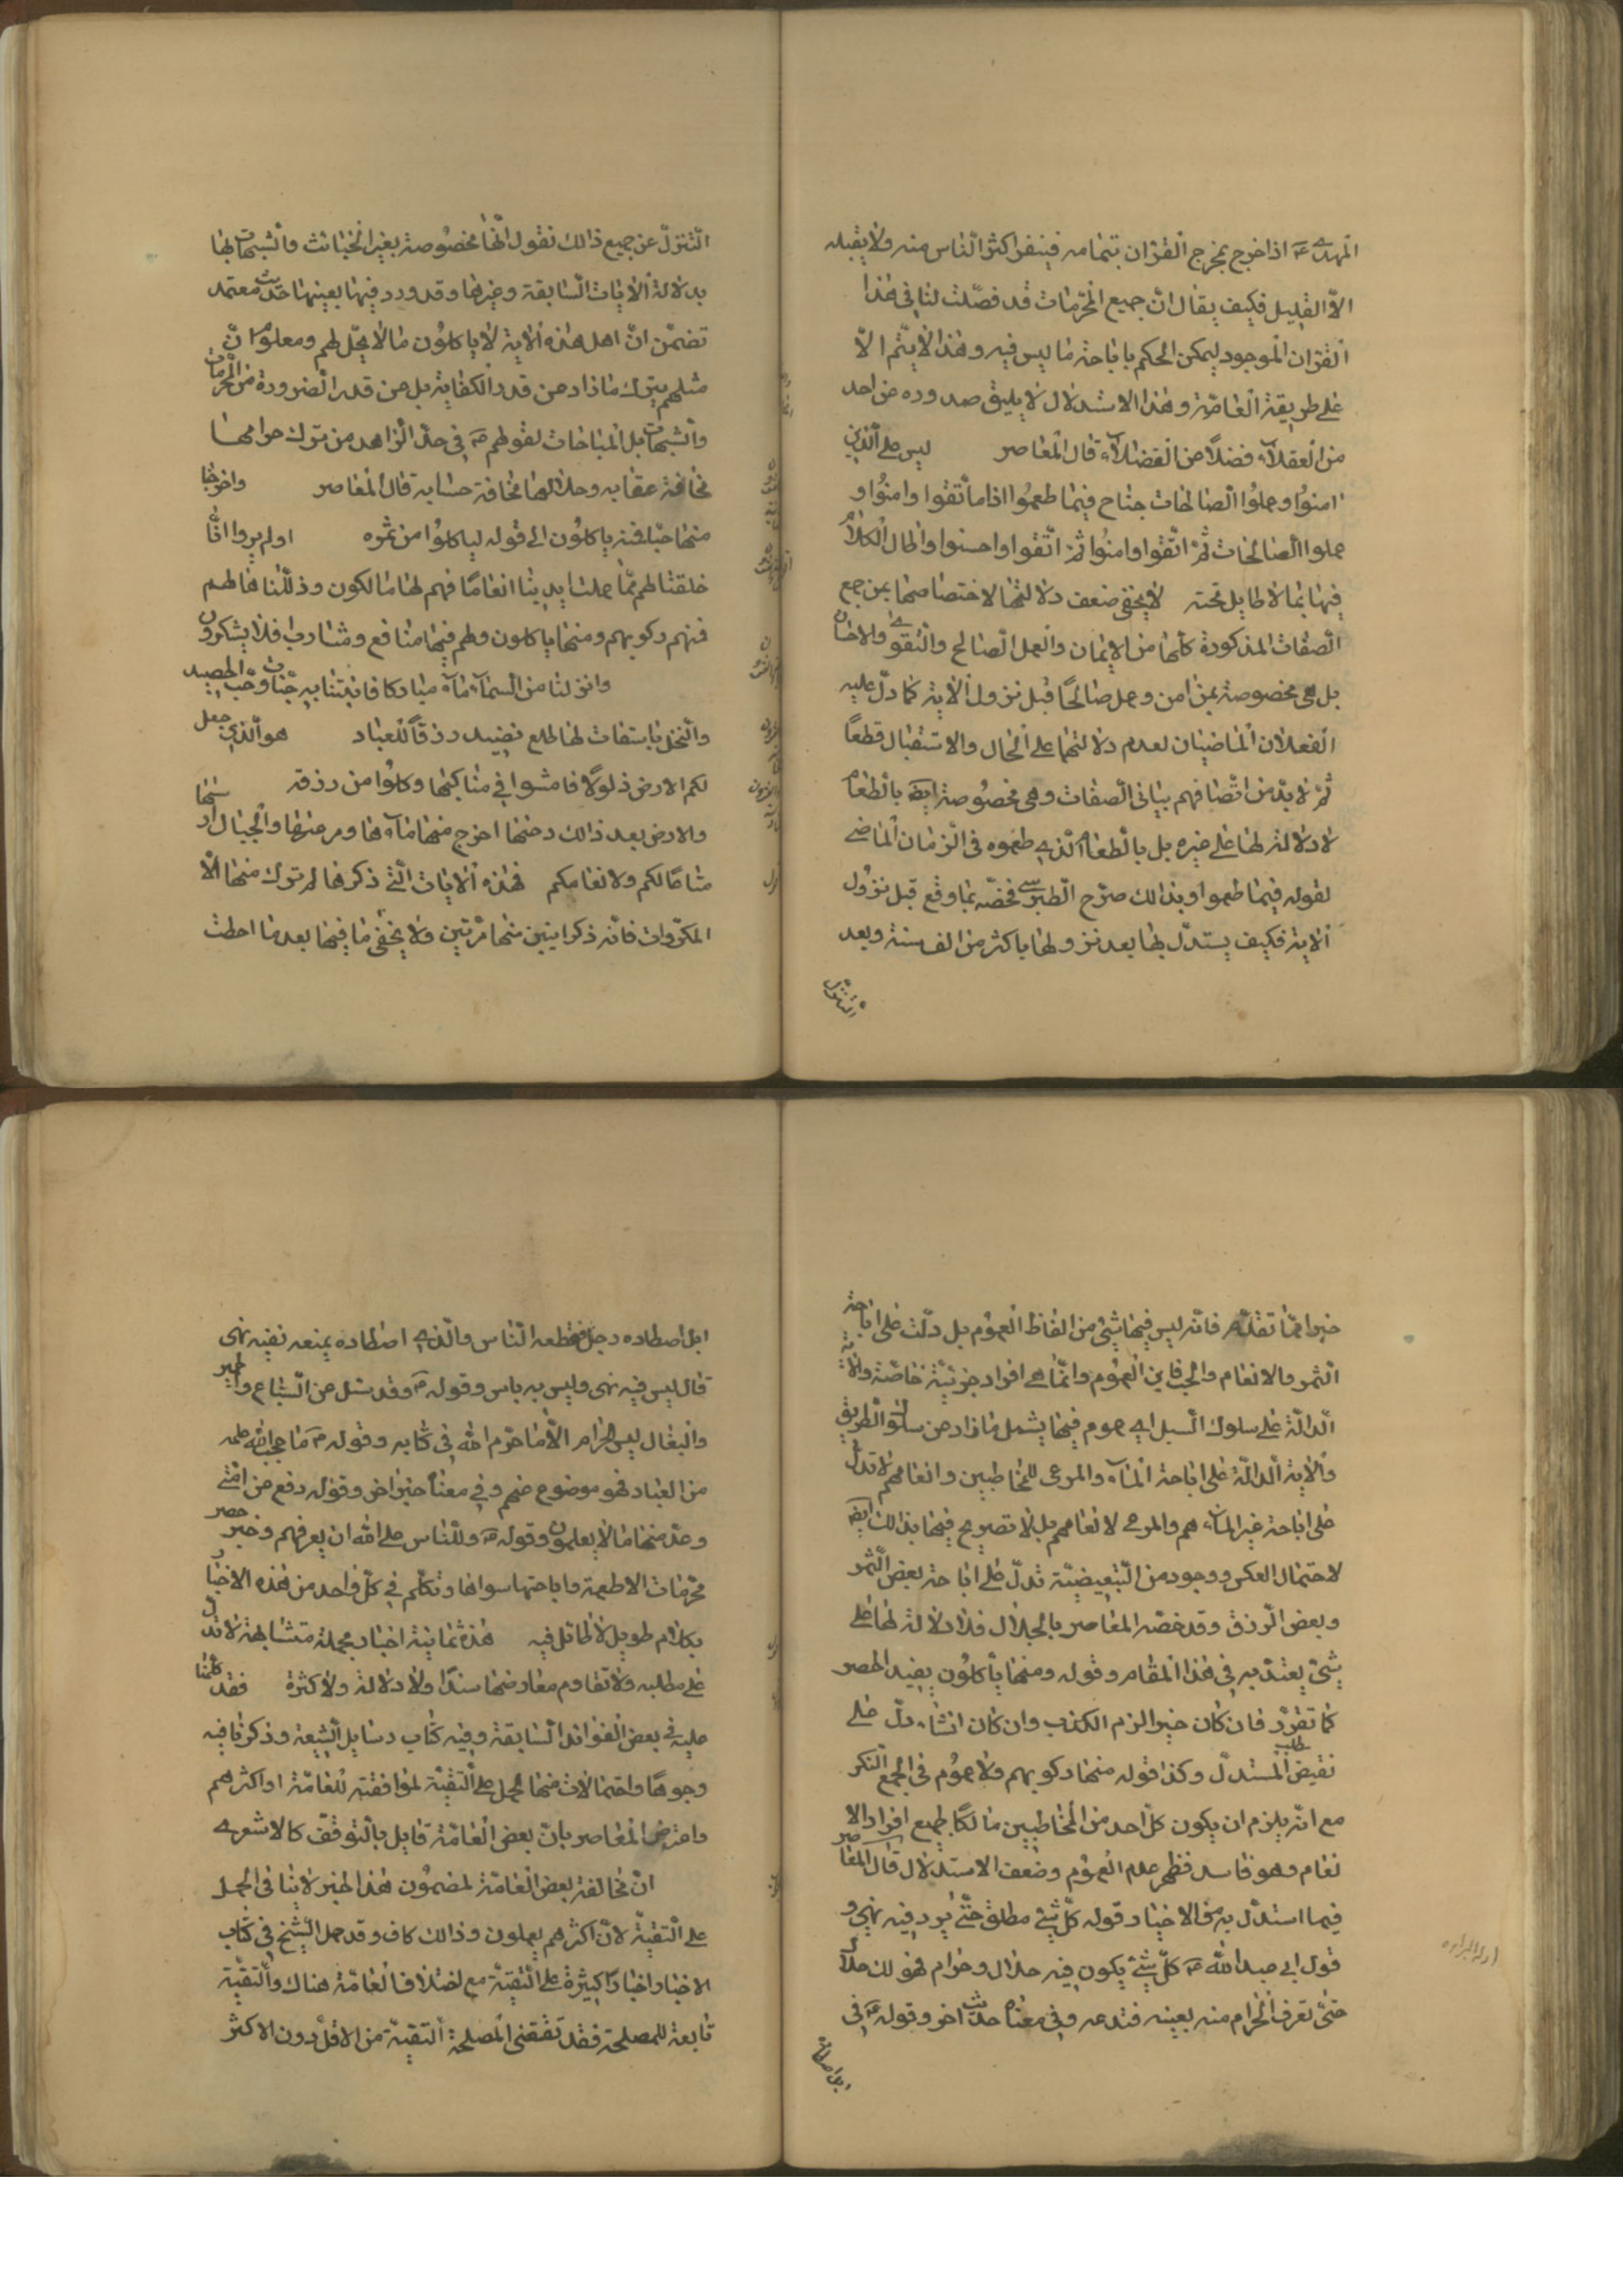 المهدی ع اذا خرج يخرج القرآن بتمامه فينفر اكثر الناس منه ولا يقبله
الّا القليل فكيف يقال انّ جميع المحرّمات قد فصّلت لنا في هذا
القرآن الموجود ليمكن الحكم باباحة ما ليس فيه وهذا لا يتمّ الّا
على طريقة العامّة وهذا الاستدلال لا يليق صدوره من احد
من العقلاء فضلاً من الفضلاء قال المعاصر ليس على الّذين
امنوا وعملوا الصّالحات جناح فيما طعموا اذا ما اتّقوا وامنوا و
عملوا الصّالحات ثمّ اتّقوا وامنوا ثمّ اتّقوا واحسنوا واطال الكلام
فيها بما لا طايل تحته لا يخفى ضعف دلالتها لاختصاصها بمن جمع
الصّفات المذكورة كلّها من الايمان والعمل الصّالح والتّقوى والاحسان
بل هي مخصوصة بمن امن وعمل صالحًا قبل نزول الآية كما دلّ عليه
الفعلان الماضيان لعدم دلالتهما على الحال والاستقبال قطعًا
ثمّ لا بدّ من اتّصافهم بباقي الصّفات وهي مخصوصة ايضا بالطّعام
لا دلالة لها على غيره بل بالطّعام الّذي طعموه في الزّمان الماضي
لقوله فيما طعموا وبذالك صرّح الطّبرسي فخصّه بما وقع قبل نزول
الآية فكيف يستدلّ لها بعد نزولها باكثر من الف سنة وبعد
التّنزّل
التّنزّل عن جميع ذالك نقول انّها مخصوصة بغير الخبائث والشّبهات لها
بدلالة الآيات السّابقة وغيرها وقد ورد فيها بعينها حديث معتمد
تضمّن انّ اهل هذه الآية لا ياكلون ما لا يحلّ لهم ومعلوم انّ
مثلهم يترك ما زاد عن قدر الكفاية بل عن قدر الضّرورة من المحرّمات
والشّبهات بل المباحات لقولهم ع في حدّ الزّاهد من ترك حرامها
مخافة عقابه وحلالها مخافة حسابه قال المعاصر واخرجنا
منها حبّا فمنه ياكلون الى قوله لياكلوا من ثمره اولم يروا انّا
خلقنا لهم ممّا عملت ايدينا انعامًا فهم لها مالكون وذلّلناها لهم
فمنهم ركوبهم ومنها ياكلون ولهم فيها منافع ومشارب افلا يشكرون
وانزلنا من السّماء ماء مباركا فانبتنا به جنّات وحبّ الحصيد
والنّخل باسقات لها طلع نضيد رزقًا للعباد هو الّذي جعل
لكم الارض ذلولاً فامشوا في مناكبها وكلوا من رزقه
والارض بعد ذالك دحيها اخرج منها ماءها ومرعيها والجبال ارسيها
متاعًا لكم ولانعامكم فهذه الآيات الّتي ذكرها لم ترك منها الّا
المكرّرات فانّه ذكر ايتين منها مرّتين ولا يخفى ما فيها بعد ما احطت
خبرا ممّا تقدّم فانّه ليس فيها شيء من الفاظ العموم بل دلّت على اباحة
الثّمر والانعام والحبّ فاين العموم وانّما هي افراد جزئيّة خاصّة والآية
الدّالّة على سلوك السّبل اي عموم فيها يشمل ما زاد عن سلوك الطّريق
والآية الدالّة على اباحة الماء والمرعى للمخاطبين وانعامهم لا تدلّ
على اباحة غير الماء لهم والمرعى لانعامهم بل لا تصريح فيها بذالك ايضا
لاحتمال العكس ووجود من التّبعيضيّة تدلّ على اباحة بعض الثّمر
وبعض الرّزق وقد خصّه المعاصر بالحلال فلا دلالة لها على
شيء يعتدّ به في هذا المقام وقوله ومنها يأكلون يفيد الحصر
كما تقرّر فان كان خبرا لزم الكذب وان كان انشاء دلّ على
نقيض مطلب المستدلّ وكذا قوله منها ركوبهم ولا عموم في الجمع المنكر
مع انّه يلزم ان يكون كلّ احد من المخاطبين مالكًا لجميع افراد الا
نعام وهو فاسد فظهر عدم العموم وضعف الاستدلال قال المعاصر
فيما استدلّ به من الاخبار قوله كلّ شيء مطلق حتّى يرد فيه نهي و
قول ابي عبد الله ع كلّ شيء يكون فيه حلال وحرام فهو لك حلال
حتّى تعرف الحرام منه بعينه فتدعه وفي معناه حديث آخر وقوله ع في
ابل اصطاده
ابل اصطاده رجل فقطعه النّاس والّذي اصطاده يمنعه نفيه نهى
قال ليس فيه نهى وليس به باس وقوله ع وقد سئل عن السّباع والحمير
والبغال ليس الحرام الّا ما حرّم الله في كتابه وقوله ع ما حجب الله علمه
من العباد فهو موضوع عنهم وفي معناه خبر اخر وقوله رفع عن امّتي
وعدّ منها ما لا يعلمون وقوله ع وللنّاس على الله ان يعرفهم وخبر حصر
محرّمات الاطعمة واباحتها سواها وتكلّم في كلّ واحد من هذه الاخبار
بكلام طويل لا طائل فيه هذه ثمانية اخبار مجملة متشابهة لا تدلّ
على مطلبه ولا تقاوم معارضها سندًا ولا دلالة ولا كثرة فقد تكلّمنا
عليه في بعض الفوائد السّابقة وفيه كتاب رسايل الشّيعة وذكرنا فيه
وجوهًا واحتمالات منها الحمل على التّقيّة لموافقته للعامّة او اكثرهم
واعترض المعاصر بانّ بعض العامّة قايل بالتّوقّف كالاشعري
انّ مخالفة بعض العامّة لمضمون هذا الخبر لا ينافي الحمل
على التّقيّة لانّ اكثرهم يعملون وذالك كاف وقد حمل الشّيخ في كتاب
الاخبار اخبارًا كثيرة على التّقيّة مع اختلاف العامّة هناك والتّقيّة
تابعة للمصلحة فقد تقتضي المصلحة التّقيّة من الاقلّ دون الاكثر